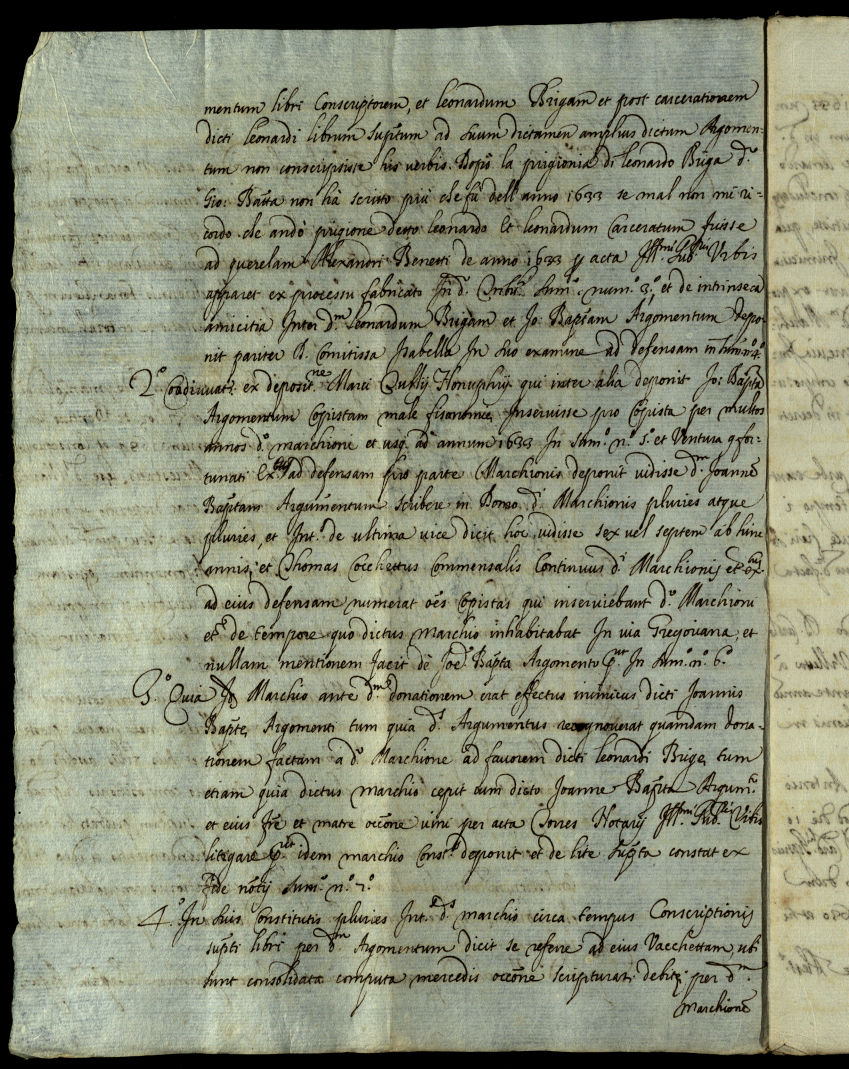 mentum libri Conscriptorem, et leonardum Brigam et post carcerationem
dicti leonardi librum supm̃ ad suum dictamen amplius dictum Argomen-
tum non conscripsisse his verbis. Dopò la prigionia di leonardo Briga d.
Gio: Batta non hà scritto più che fù dell'anno 1633 se mal non mi ri-
cordo che andò prigione detto leonardo Et leonardum Carceratum fuisse
ad querelam Alexandri Benetti de anno 1633 acta Ill.mi Gub.ris Urbis
apparet ex processu fabricato Sum.o num.o 3.o, et de intrinseca
amicitia Inter d.m leonardum Brigam et Jo: Baptam Argomentum depo-
nit pariter D. Comitissa Isabella In suo examine ad defensam in Summ.o 4.o
2.o ex deposit.ne Marci Honuphrij qui inter alia deponit Jo: Bapta
Argomentum Copistam male inservisse pro Copista per multos
annos d.o marchioni et usq. ad annum 1633 In sum.o n.o 5.o et Ventura q for-
tunati ad defensam pro parte Marchionis deponit vidisse d.m Joannẽ
Baptam Argumentum scribere in Domo d.i Marchionis pluries atque
pluries, et Int.s de ultima vice dicit hoc vidisse sex vel septem ab hinc
annis, et Thomas Cocchettus Commensalis Continuus d.i Marchionis et
ad eius defensam numerat oẽs Copistas qui inserviebant d.o Marchioni
et de tempore quo dictus marchio inhabitabat In via Gregoriana, et
nullam mentionem facit de Joe: Bapta Argomento p.ut In sum.o n.o 6.o
3.o Quia Marchio ante d.m donationem erat effectus inimicus dicti Joannis
Bapte, Argomenti tum quia d.s Argumentus recognoverat quamdam dona-
tionem factam a d.o Marchione ad favorem dicti leonardi Brige, tum
etiam quia dictus marchio cepit cum dicto Joanne Bapta Argum.to
et eius fre et matre occõne vini per acta Torres Notarij Ill.mi Gub.ris Urbis
litigare p.ut idem marchio Const.s deponit et de lite supta constat ex
fide notij sum.o n.o 7.o
4.o In suis Constitutis pluries Int. d.s marchio circa tempus Conscriptionis
supti libri per d.m Argomentum dicit se referre ad eius Vacchettam, ubi
sunt consolidata computa mercedis occõne scripturar. debite per d.m
Marchionẽ